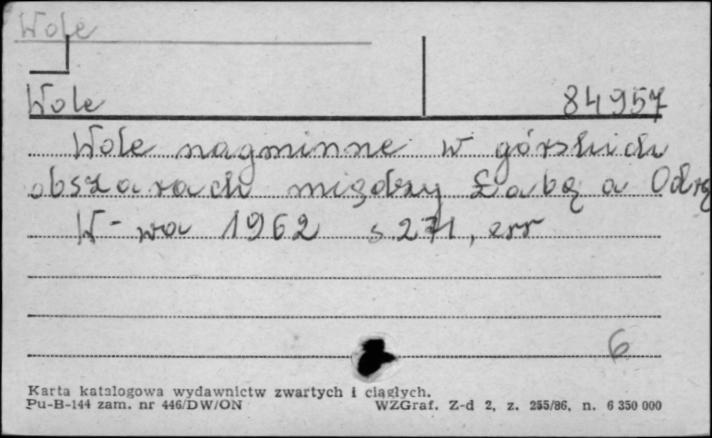 Wole
Wole 84957
Wole nagminne w górskich
obszarach między Łabą a Odrą
W-wa 1962 s 271, err
6
Karta katalogowa wydawnictw zwartych i ciągłych.
Pu-B-144 zam. nr 446/DW/ON WZGraf. Z-d 2, z. 255/86, n. 6 350 000